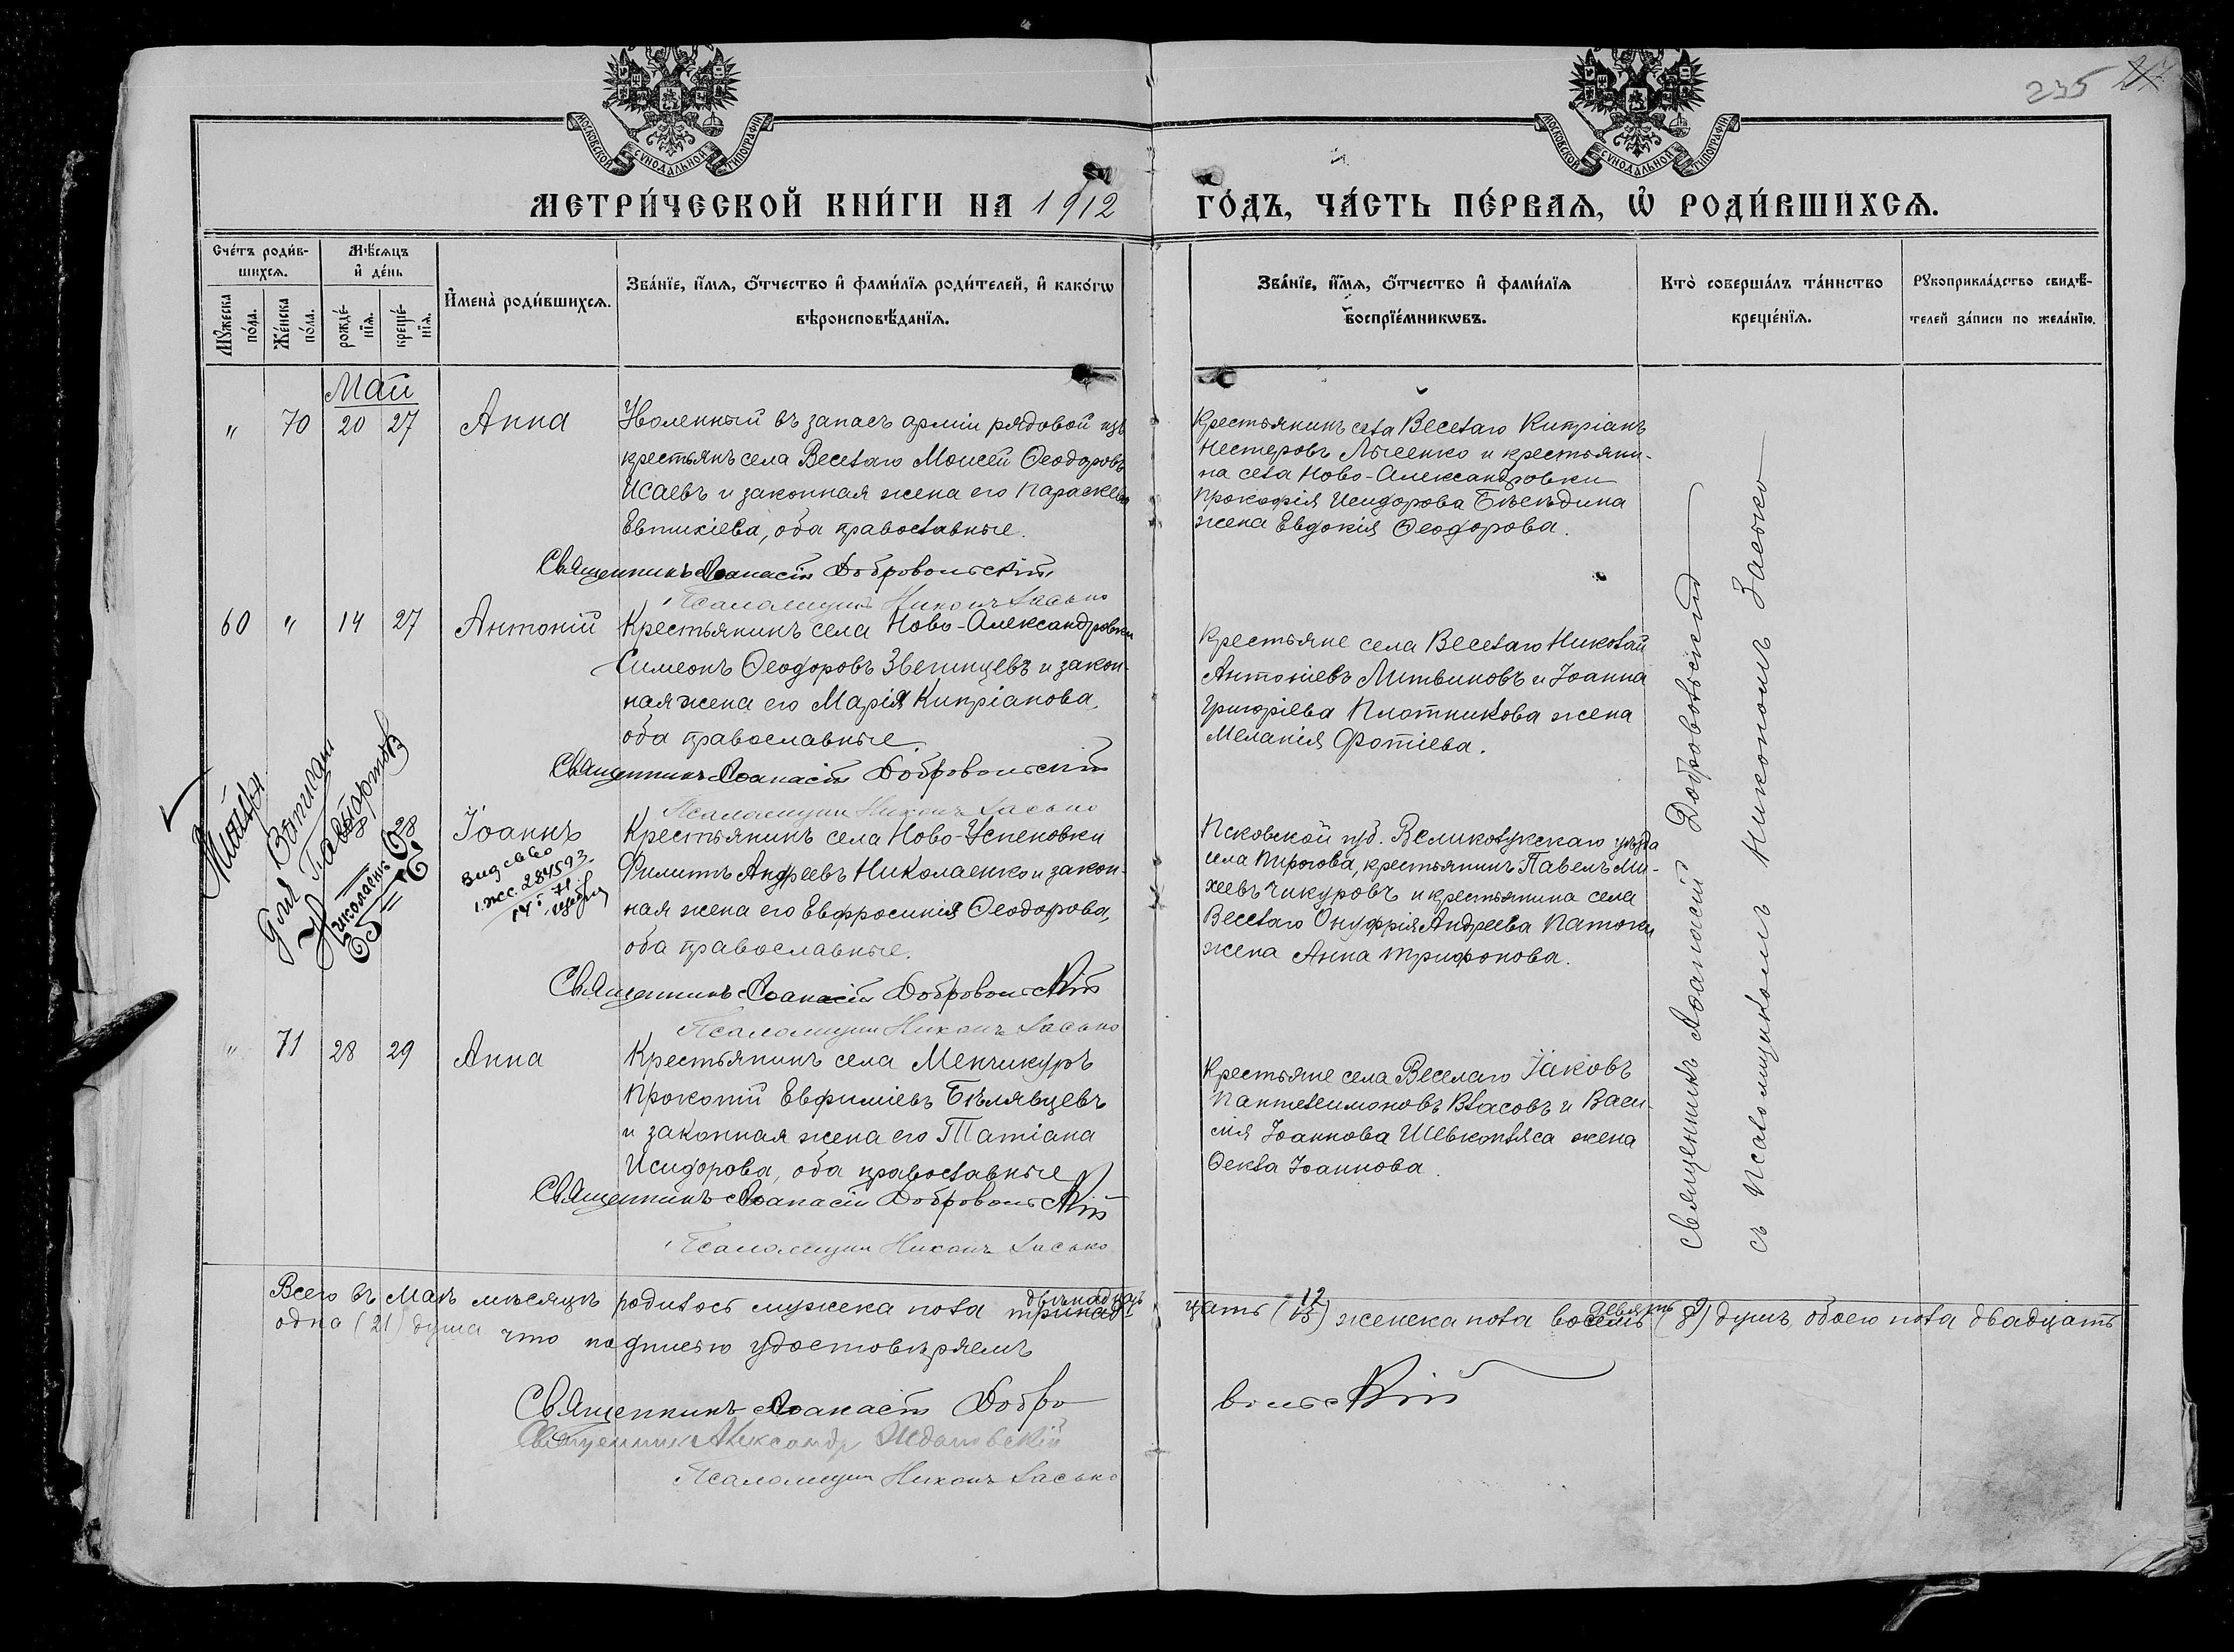 235
МОСКОВСКОЙ СѴНОДАЛЬНОЙ ТИПОГРАФІИ
МОСКОВСКОЙ СѴНОДАЛЬНОЙ ТИПОГРАФІИ
МЕТРИ́ЧЕСКОЙ КНИ́ГИ НА 1912 ГО́ДЪ, ЧА́СТЬ ПЕ́РВАЯ, Ѡ҆ РОДИ́ВШИХСЯ.
Сче́тъ роди́в-
шихся.
Мꙋ́жеска по́ла.
Же́нска по́ла.
Мѣ́сяцъ
и҆ де́нь
рожде́-
нїя.
креще́-
нїя.
И҆мена̀ роди́вшихся.
Зва́нїе, и҆́мя, ѻ҆́тчество и҆ фами́лїя роди́телей, и҆ како́гѡ
вѣроисповѣ́данїя.
Зва́нїе, и҆́мя, ѻ҆́тчество и҆ фами́лїя
воспрїе́мникѡвъ.
Кто̀ соверша́лъ та́инство
креще́нїя.
Рꙋкоприкла́дство свидѣ́-
телей за́писи по жела́нїю.
Май
" 70 20 27 Анна
Уволенный въ запасъ арміи рядовой изъ
крестьянъ села Веселаго Моисей Ѳеодоровъ
Исаевъ и законная жена его Параскева
Евтихіева, оба православные.
Священникъ Аѳанасій Добровольскій
Псаломщикъ Никонъ Засько
Крестьянинъ села Веселаго Кипріанъ
Нестеровъ Лысенко и крестьяни-
на села Ново-Александровки
Прокофія Исидорова Бѣсѣдина
жена Евдокія Ѳеодорова.
60 " 14 27 Антоній
Крестьянинъ села Ново-Александровки
Симеонъ Ѳеодоровъ Звегинцевъ и закон-
ная жена его Марія Кипріанова,
оба православные.
Священникъ Аѳанасій Добровольскій
Псаломщикъ Никонъ Засько
Крестьяне села Веселаго Николай
Антоніевъ Литвиновъ и Іоанна
Григоріева Плотникова жена
Меланія Фотіева.
Іоаннъ
для
28
Крестьянинъ села Ново-Успеновки
Филиппъ Андреевъ Николаенко и закон-
ная жена его Евфросинія Ѳеодорова,
оба православные.
Священникъ Аѳанасій Добровольскій
Псаломщикъ Никонъ Засько
Псковской губ. Великолукскаго уѣзда
села Пирогова, крестьянинъ Павелъ Ми-
хеевъ Чикуровъ и крестьянина села
Веселаго Онуфрія Андреева Патоки
жена Анна Трифонова.
" 71 28 29 Анна
Крестьянинъ села Менчикуръ
Прокопій Евфиміевъ Бѣлявцевъ
и законная жена его Татіана
Исидорова, оба православные
Священникъ Аѳанасій Добровольскій
Псаломщикъ Никонъ Засько
Крестьяне села Веселаго Іаковъ
Пантелеимоновъ Власовъ и Васи-
лія Іоаннова Шевкопляса жена
Ѳекла Іоаннова.
Священникъ Аѳанасій Добровольскій
съ псаломщикомъ Никономъ Засько
Всего въ маѣ мѣсяцѣ родилось мужска пола двѣнадцать тринадцать (12) женска пола девять восемь (9) душъ, обоего пола двадцать
одна (21) душа что подписью удостовѣряемъ
Священникъ Аѳанасій Добровольскій
Священник Александр Ждановскій
Псаломщикъ Никонъ Засько